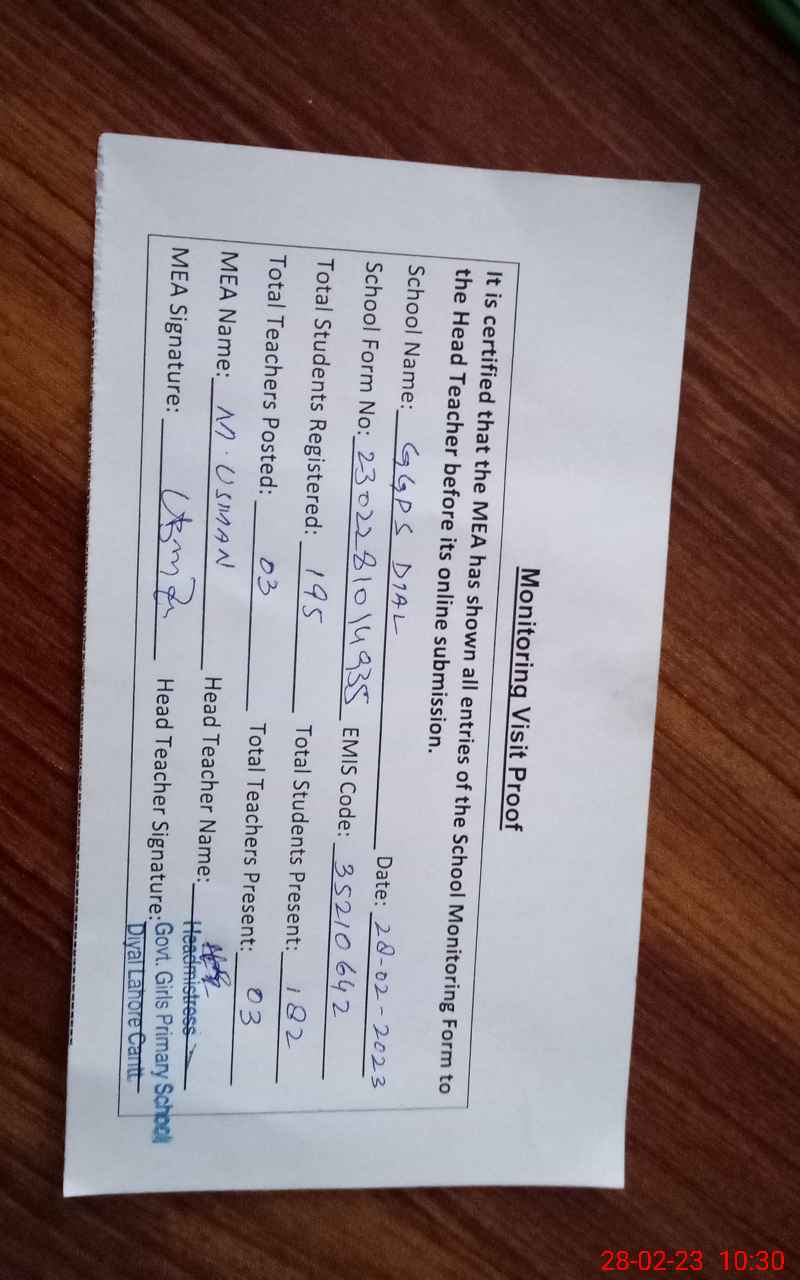 Monitoring Visit Proof
It is certified that the MEA has shown all entries of the School Monitoring Form to
the Head Teacher before its online submission.
School Name: GGPS DIAL Date: 28-02-2023
School Form No: 23022281014935 EMIS Code: 35210642
Total Students Registered: 195 Total Students Present: 182
Total Teachers Posted: 03 Total Teachers Present: 03
MEA Name: M. USMAN Head Teacher Name:
MEA Signature: Head Teacher Signature:
Headmistress
Govt. Girls Primary School
Diyal Lahore Cantt.
28-02-23 10:30